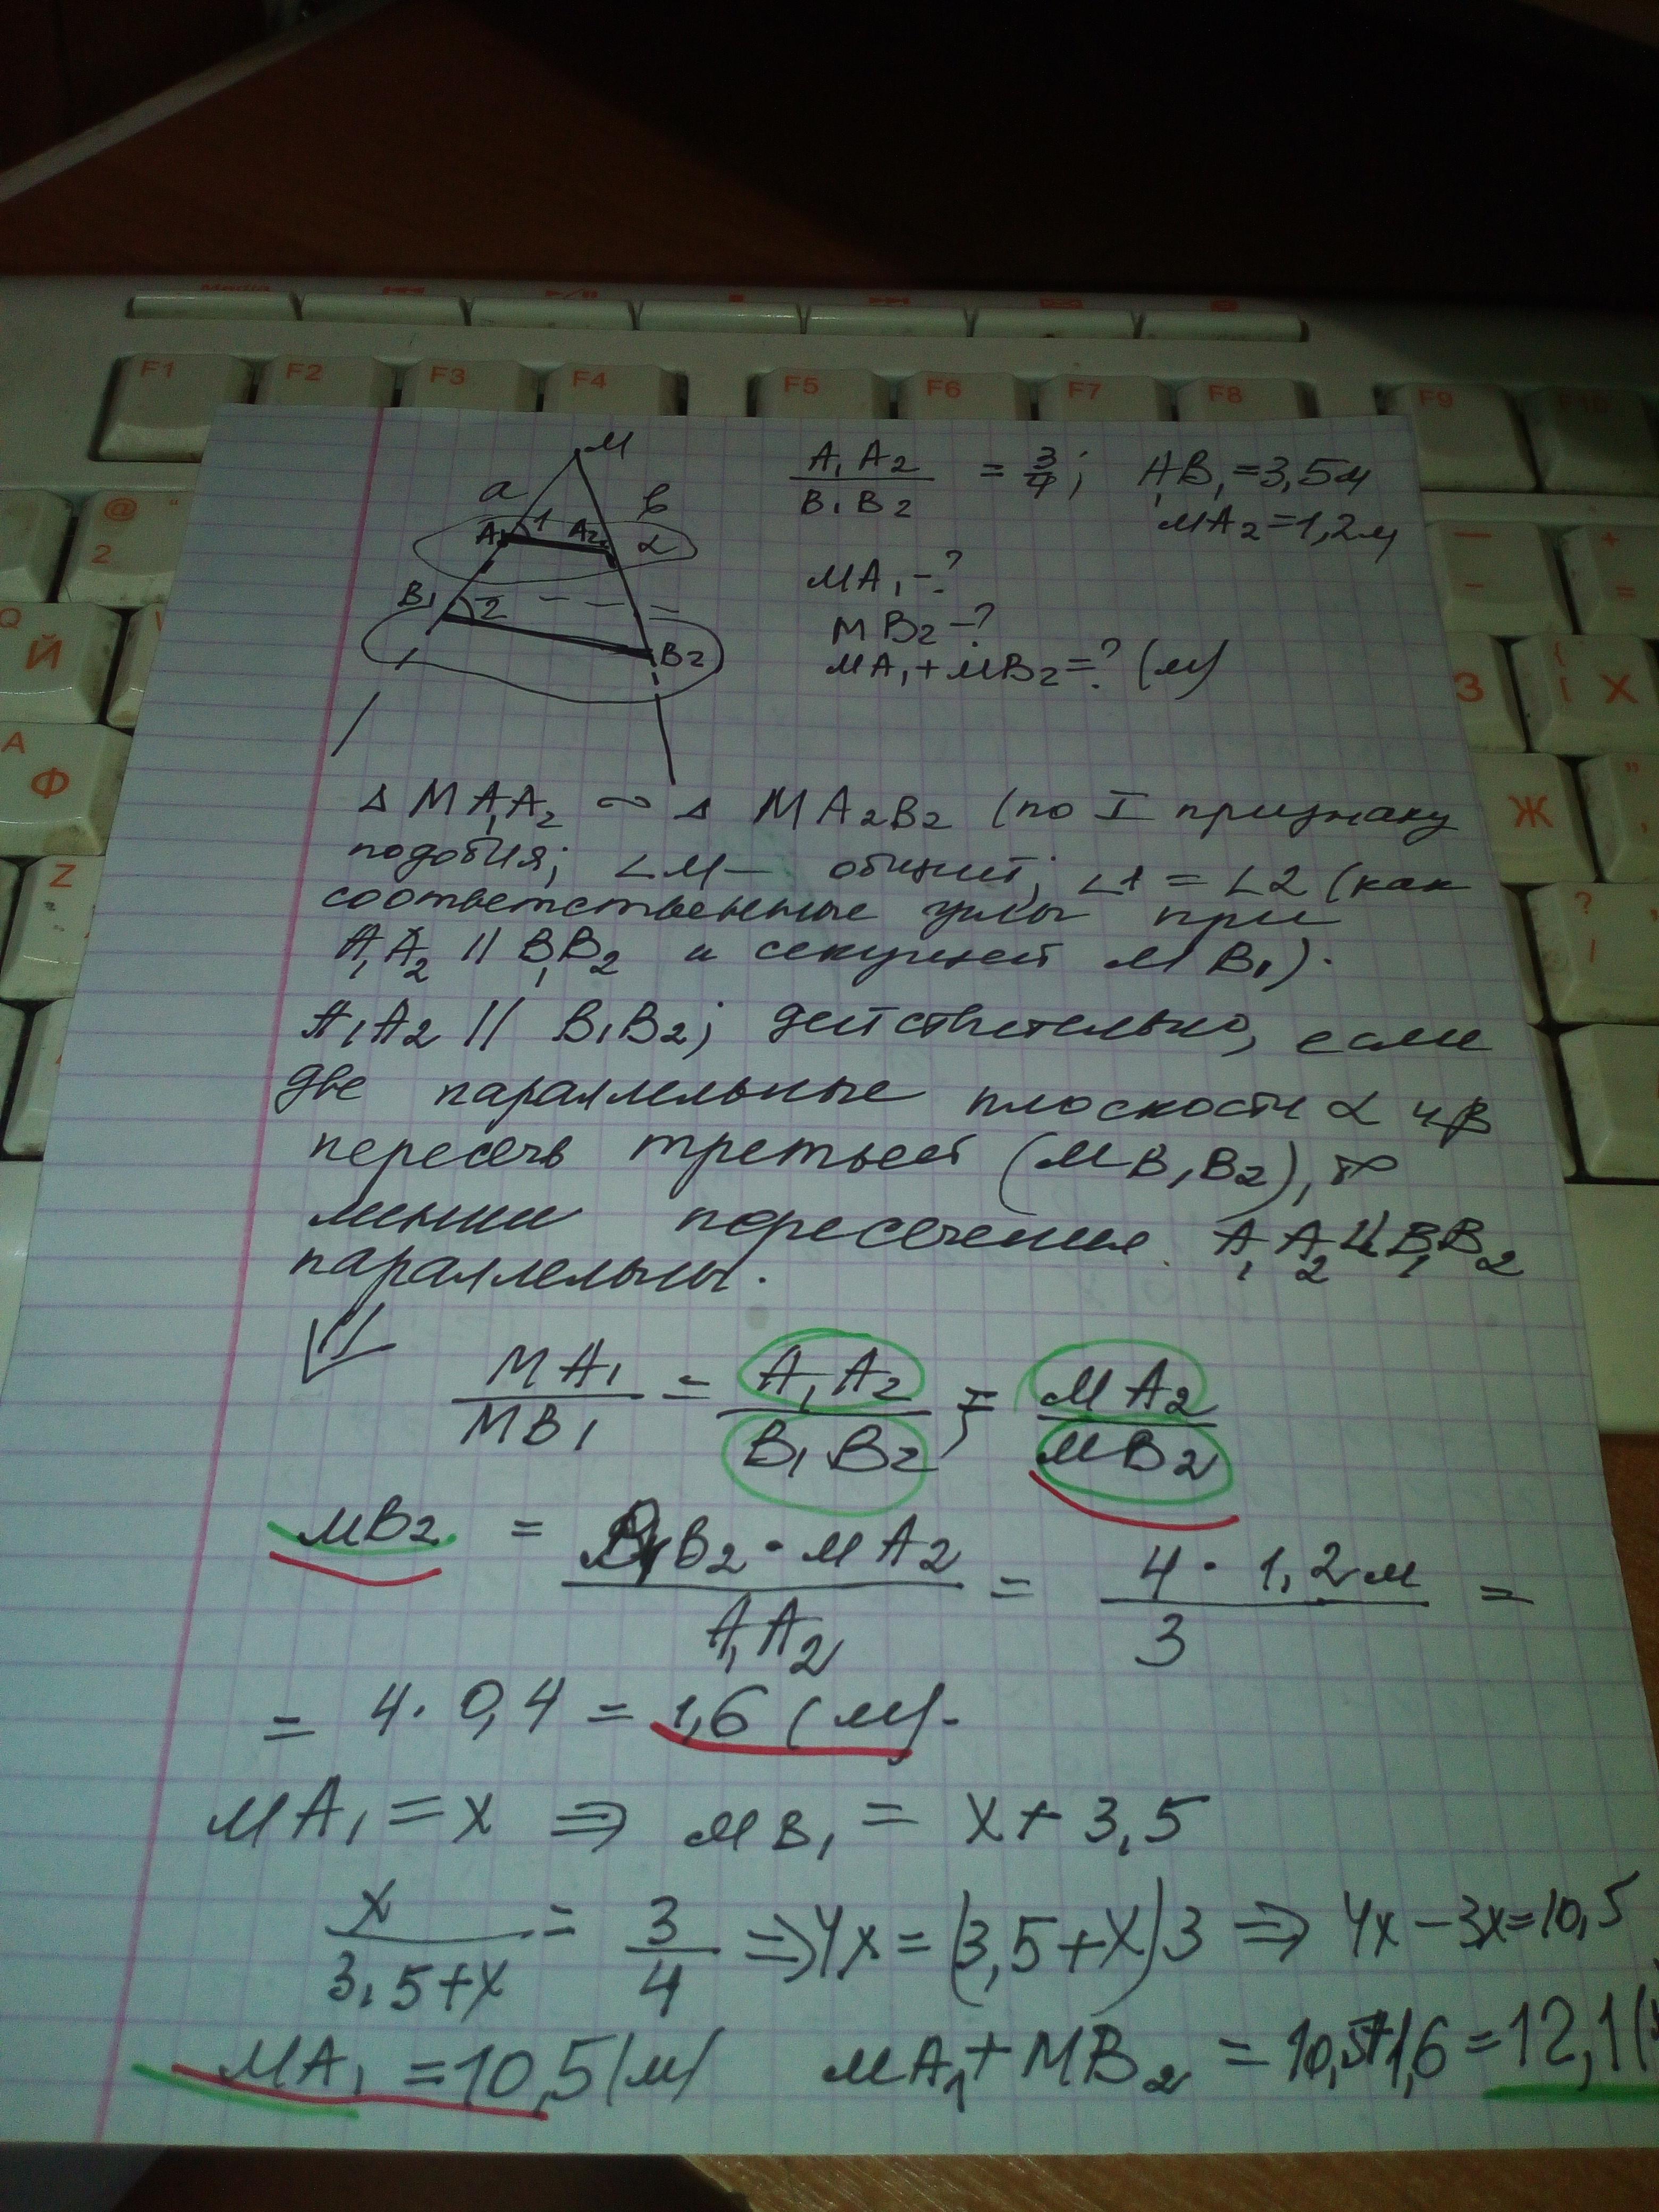 Media
F1 F2 F3 F4 F5 F6 F7 F8 F9 F10
@ "
2
Q
Й
А
Ф
Z
— +
- =
З { [ Х
Ж "
? /
М
a в
A₁ 1 A₂ α
B₁ 2
B₂
A₁A₂/B₁B₂ = 3/4; A₁B₁=3,5м
MA₂=1,2м
MA₁-?
MB₂-?
MA₁+MB₂=? (м)
Δ MA₁A₂ ∾ Δ MA₂B₂ (по I признаку
подобия; ∠M — общий; ∠1 = ∠2 (как
соответственные углы при
A₁A₂ || B₁B₂ и секущей MB₁).
A₁A₂ || B₁B₂; действительно, если
две параллельные плоскости α и β
пересечь третьей (MB₁B₂), то
линии пересечения A₁A₂ и B₁B₂
параллельны.
⇓
MA₁/MB₁ = A₁A₂/B₁B₂ = MA₂/MB₂
MB₂ = B₁B₂·MA₂/A₁A₂ = 4·1,2м/3 =
= 4·0,4 = 1,6 (м).
MA₁ = x ⇒ MB₁ = x + 3,5
x/3,5+x = 3/4 ⇒ 4x = (3,5+x)3 ⇒ 4x - 3x = 10,5
MA₁ = 10,5 (м) MA₁ + MB₂ = 10,5+1,6 = 12,1 (